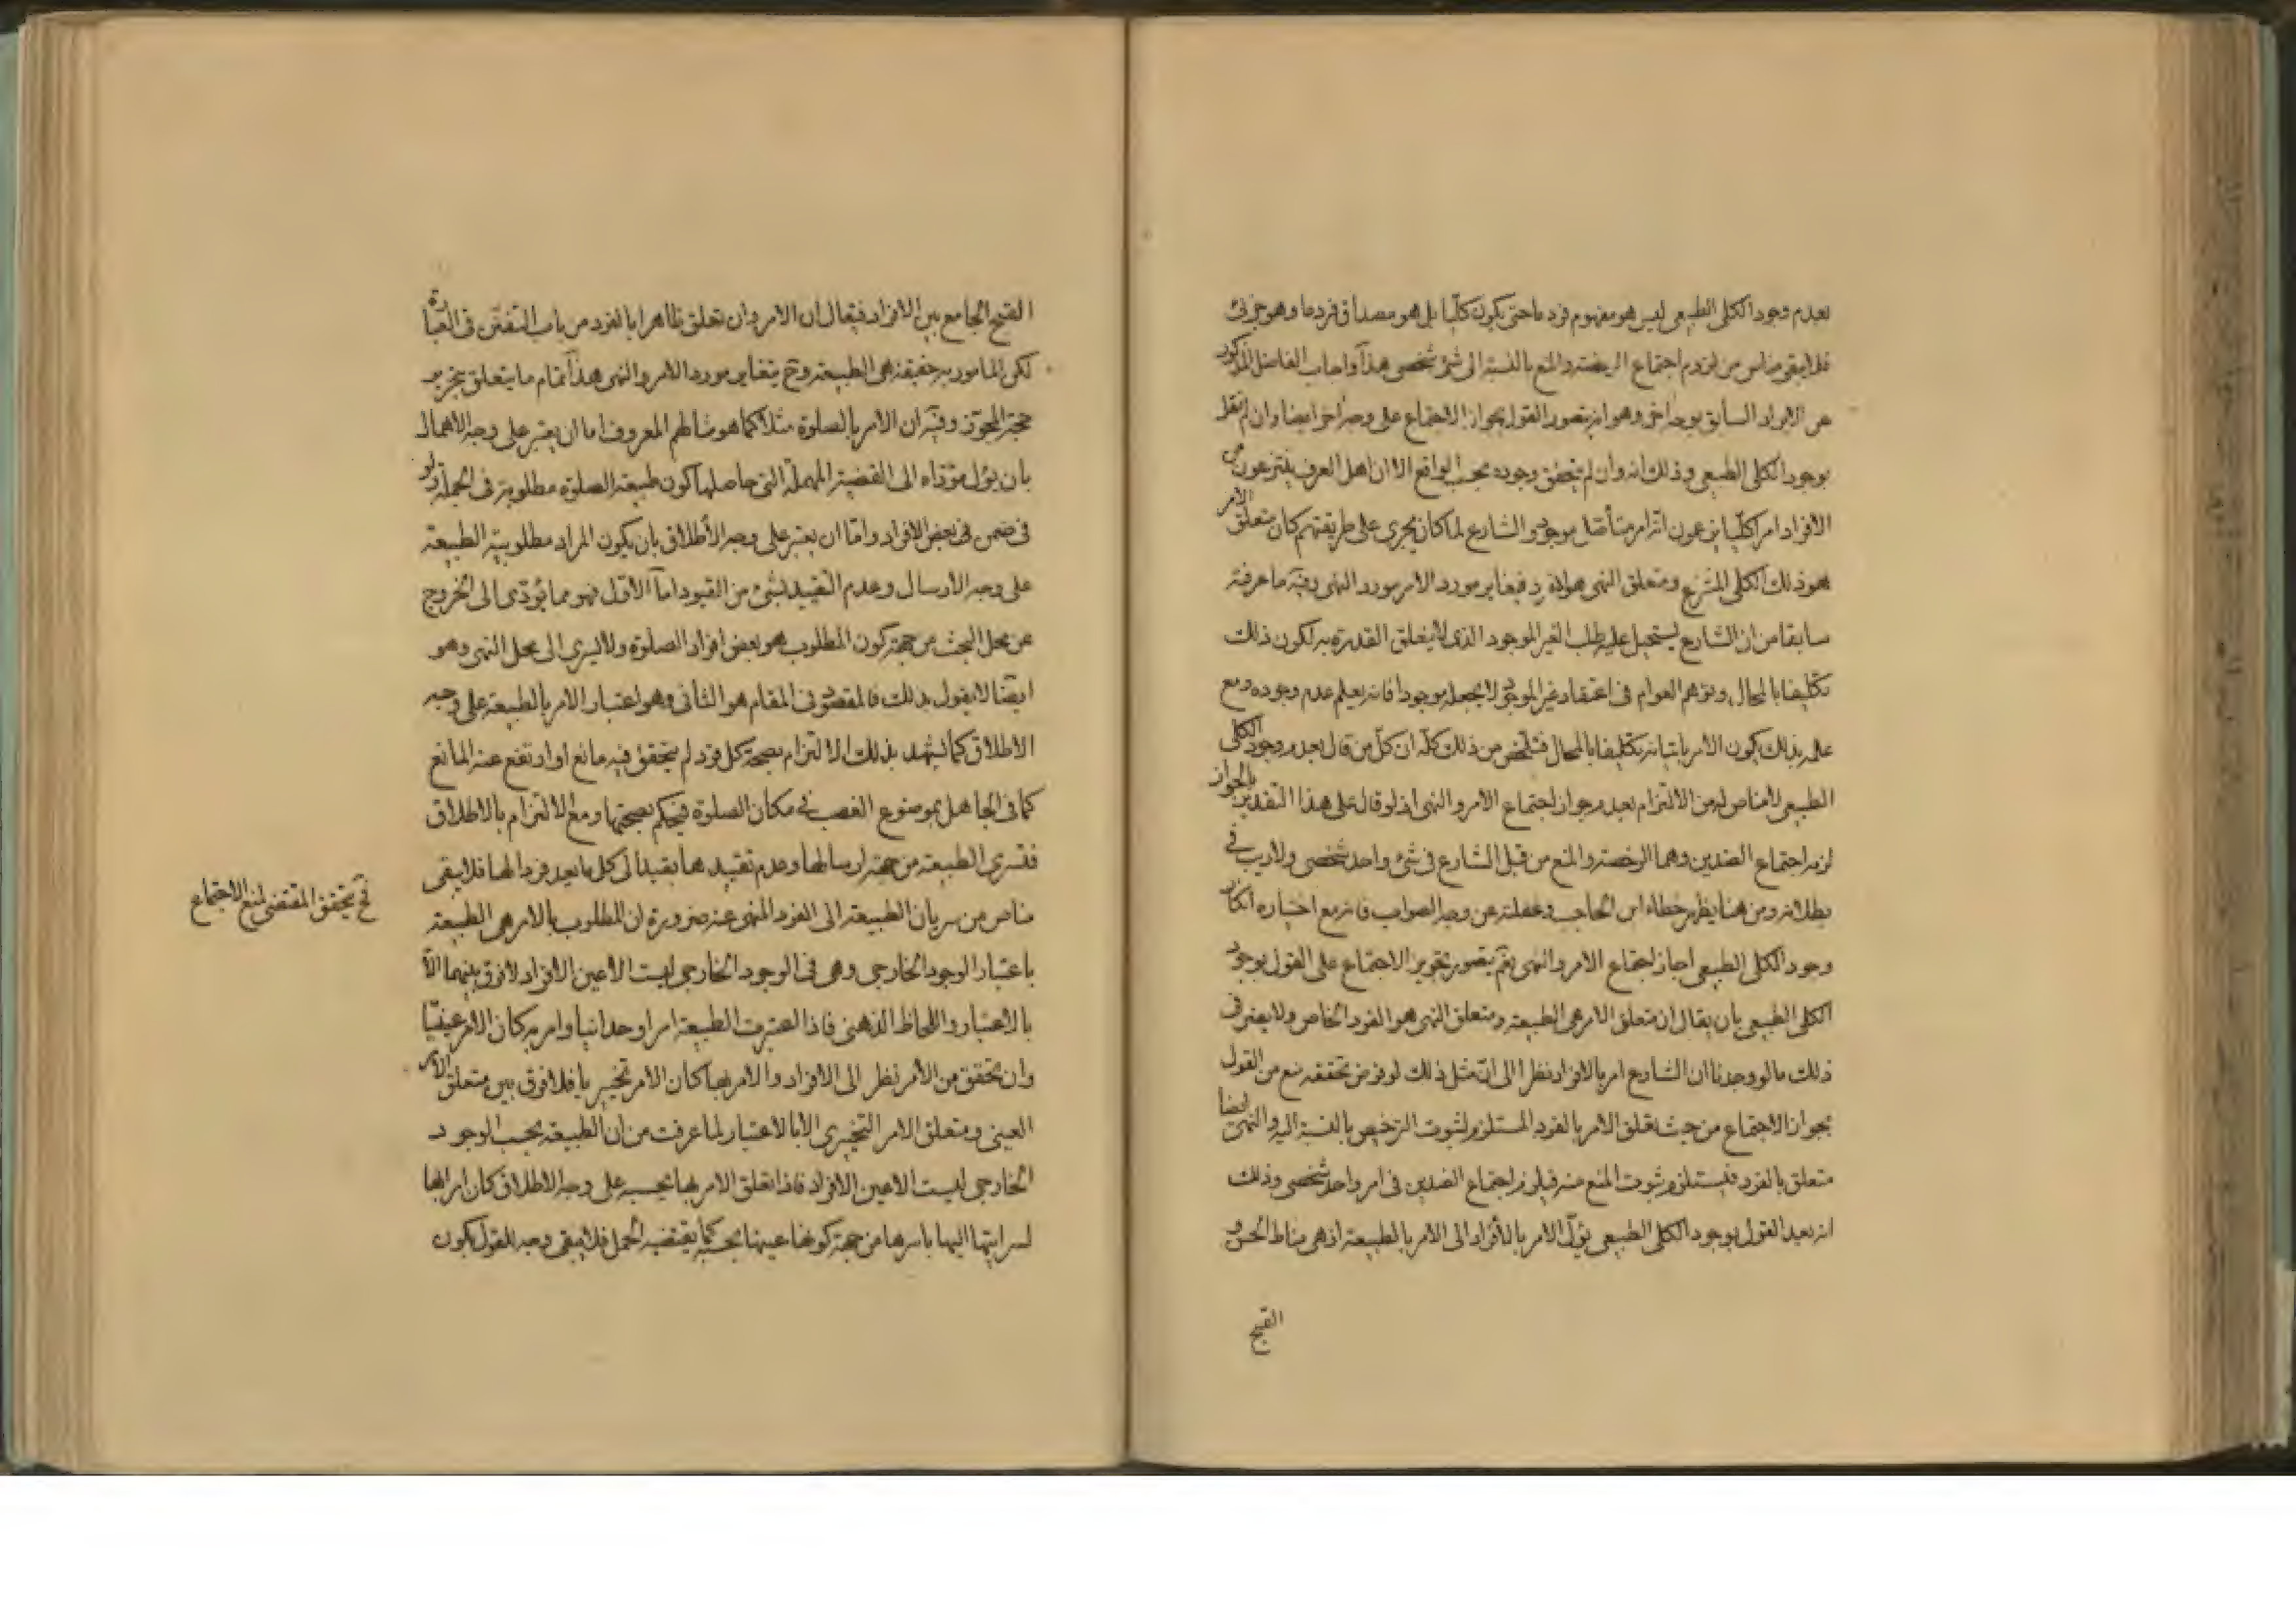 بعدم وجود الكلى الطبيعى ليس هو مفهوم فرد ما حتى يكون كليّا بل هو مصداق فرد ما وهو جزئى
فلا يبقى مناص من لزوم اجتماع الرخصة والمنع بالنسبة الى شئ شخصى هذا واجاب الفاضل المذكور
عن الايراد السابق بوجه اخر وهو انه يتصور القول بجواز الاجتماع على وجه اخر ايضا وان لم نقل
بوجود الكلى الطبيعى وذلك انه وان لم يتحقق وجوده بحسب الواقع الا ان اهل العرف ينتزعون من
الأفراد امرا كليّا يزعمون انه امر متأصل موجود والشارع لما كان يجرى على طريقتهم كان متعلق الامر
هو ذلك الكلى المنتزع ومتعلق النهى هو الفرد فيغاير مورد الامر مورد النهى وفيه ما عرفته
سابقا من ان الشارع يستحيل عليه طلب الغير الموجود الذى لا يتعلق القدرة به لكون ذلك
تكليفا بالمحال وتوهم العوام فى اعتقاد غير الموجود لا يجعله موجودا فانه يعلم عدم وجوده ومع
علمه بذلك يكون الامر باتيانه تكليفا بالمحال فتلخص من ذلك كلّه ان كلّ من قال بعدم وجود الكلى
الطبيعى لا مناص له من الالتزام بعدم جواز اجتماع الامر والنهى اذ لو قال على هذا التقدير بالجواز
لزم اجتماع الضدين وهما الرخصة والمنع من قبل الشارع فى شئ واحد شخصى ولا ريب فى
بطلانه ومن هنا يظهر خطاء ابن الحاجب وغفلته عن وجه الصواب فانه مع اختياره انكار
وجود الكلى الطبيعى اجاز اجتماع الامر والنهى نعم يتصور تجويز الاجتماع على القول بوجود
الكلى الطبيعى بان يقال ان متعلق الامر هى الطبيعة ومتعلق النهى هو الفرد الخاص ولا يضر فى
ذلك ما لو وجدنا ان الشارع امر بالافراد نظرا الى انّ مثل ذلك لو فرض تحققه منع من القول
بجواز الاجتماع من حيث تعلق الامر بالفرد المستلزم لثبوت الترخيص بالنسبة اليه والنهى ايضا
متعلق بالفرد فيستلزم ثبوت المنع عنه فيلزم اجتماع الضدين فى امر واحد شخصى وذلك
انه بعد القول بوجود الكلى الطبيعى يؤل الامر بالأفراد الى الامر بالطبيعة اذ هى مناط الحسن و
القبح
القبح الجامع بين الافراد فيقال ان الامر وان تعلق ظاهرا بالفرد من باب التفنّن فى العبارة
لكن المامور به حقيقة هى الطبيعة وح يتغاير مورد الامر والنهى هذا تمام ما يتعلق بتحرير
حجة المجوّز وفيه ان الامر بالصلوة مثلا كما هو مثالهم المعروف اما ان يعتبر على وجه الاهمال
بان يؤل مؤدّاه الى القضية المهملة التى حاصلها كون طبيعة الصلوة مطلوبة فى الجملة ولو
فى ضمن بعض الافراد وامّا ان يعتبر على وجه الأطلاق بان يكون المراد مطلوبية الطبيعة
على وجه الارسال وعدم التقييد بشئ من القيود امّا الأوّل فهو مما يؤدّى الى الخروج
عن محل البحث من جهة كون المطلوب هو بعض افراد الصلوة ولا يسرى الى محل النهى وهو
ايضًا لا يقول بذلك فالمقصود فى المقام هو الثانى وهو اعتبار الامر بالطبيعة على وجه
الاطلاق كما يشهد بذلك الالتزام بصحة كل فرد لم يتحقق فيه مانع او ارتفع عنه المانع
كما فى الجاهل بموضوع الغصب فى مكان الصلوة فيحكم بصحتها ومع الالتزام بالاطلاق
فتسرى الطبيعة من جهة ارسالها وعدم تقييدها بقيد الى كل ما يعد فردا لها فلا يبقى
مناص من سريان الطبيعة الى الفرد المنهى عنه ضرورة ان المطلوب بالامر هى الطبيعة
فح يتحقق المقتضى لمنع الاجتماع
باعتبار الوجود الخارجى وهى فى الوجود الخارجى ليست الا عين الافراد لا فرق بينهما الّا
بالاعتبار واللحاظ الذهنى فاذا اعتبرت الطبيعة امرا وحدانيا وامر به كان الامر عينيّا
وان تحقق من الأمر نظر الى الافراد والامر بها كان الامر تخييريا فلا فرق بين متعلق الأمر
العينى ومتعلق الامر التخييرى الا بالاعتبار لما عرفت من ان الطبيعة بحسب الوجود
الخارجى ليست الا عين الافراد فاذا تعلق الامر بها بحسبه على وجه الاطلاق كان امرا بها
لسرايتها اليها باسرها من جهة كونها عينها بحسبه كما يقتضيه الحمل فلا يبقى وجه للقول بكون